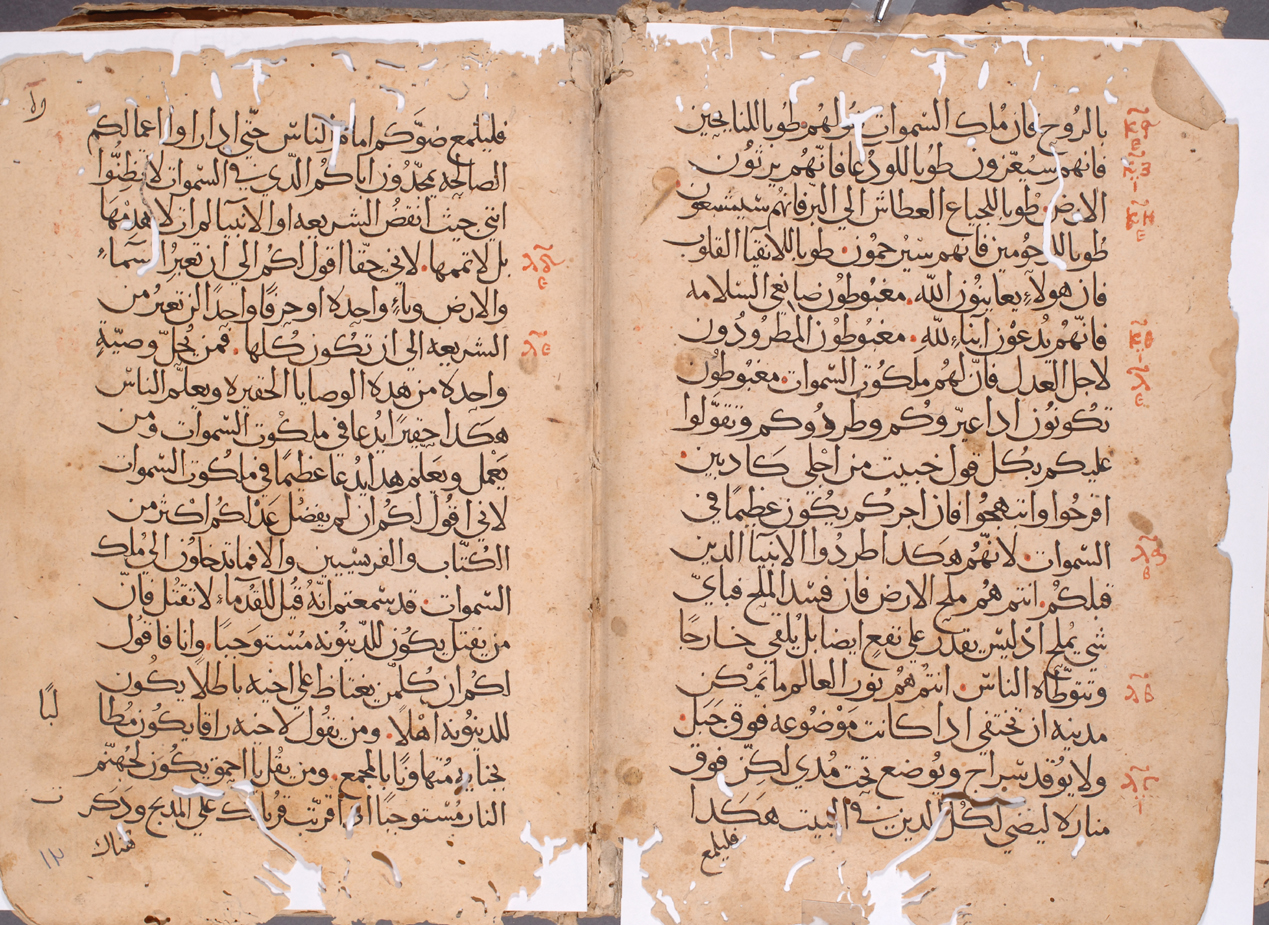 بالروح فان ملك السموات لهم طوبا للنايحين
فانهم سيعزون طوبا للودعا فانهم يرثون
الارض طوبا للجياع العطاش الي البر فانهم سيشبعون
طوبا للرحومين فانهم سيرحمون طوبا للانقيا القلوب
فان هولاء يعاينون الله مغبوطون صانعي السلامه
فانهم يدعون ابناء لله مغبوطون المطرودون
لاجل العدل فان لهم ملكوت السموات مغبوطون
تكونون ادا عيروكم وطردوكم وتقولوا
عليكم بكل قول خبيت من اجلي كادبين
افرحوا وابتهجوا فان اجركم يكون عظيما في
السموات لانهم هكدا اطردوا الانبيا الدين
قبلكم انتم هم ملح الارض فان فسد الملح فباي
شي يملح اد ليس يقدر علي نفع ايضا بل يلقي خارجا
وتتوطاه الناس انتم هم نور العالم ما تمكن
مدينه ان تختفي ادا كانت موضوعه فوق جبل
ولا يوقد سراج ويوضع تحت مدي لكن فوق
مناره ليضي لكل الدين في البيت هكدا
فليلمع
فليلمع ضوكم امام الناس حتي ادا راوا اعمالكم
الصالحه يمجدون اباكم الدي في السموات لا تظنوا
انني جيت انقض الشريعه او الانبيا لم ات لاهدمها
بل لاتممها لاني حقا اقول لكم الي ان تعبر السماء
والارض وياء واحده او حرفا واحدا لن تعبر من
الشريعه الي ان تكون كلها فمن يحل وصية
واحده من هده الوصايا الحقيره ويعلم الناس
هكدا حقيرا يدعا في ملكوت السموات ومن
يعمل ويعلم هدا يدعا عظيما في ملكوت السموات
لاني اقول لكم ان لم يفضل عدلكم اكثر من
الكتاب والفرسيين والا فما تدخلون الي ملك
السموات قد سمعتم انه قيل للقدماء لا تقتل فان
من يقتل يكون للدينونه مستوجبا وانا فاقول
لكم ان كلمن يغتاظ علي اخيه باطلا يكون
للدينونه اهلا ومن يقول لاخيه راقا يكون مطا
بجنايه متهاونا بالمجمع ومن يقل يا احمق يكون لجهنم
النار مستوجبا ان قربت قربانك علي المدبح ودكر
هناك